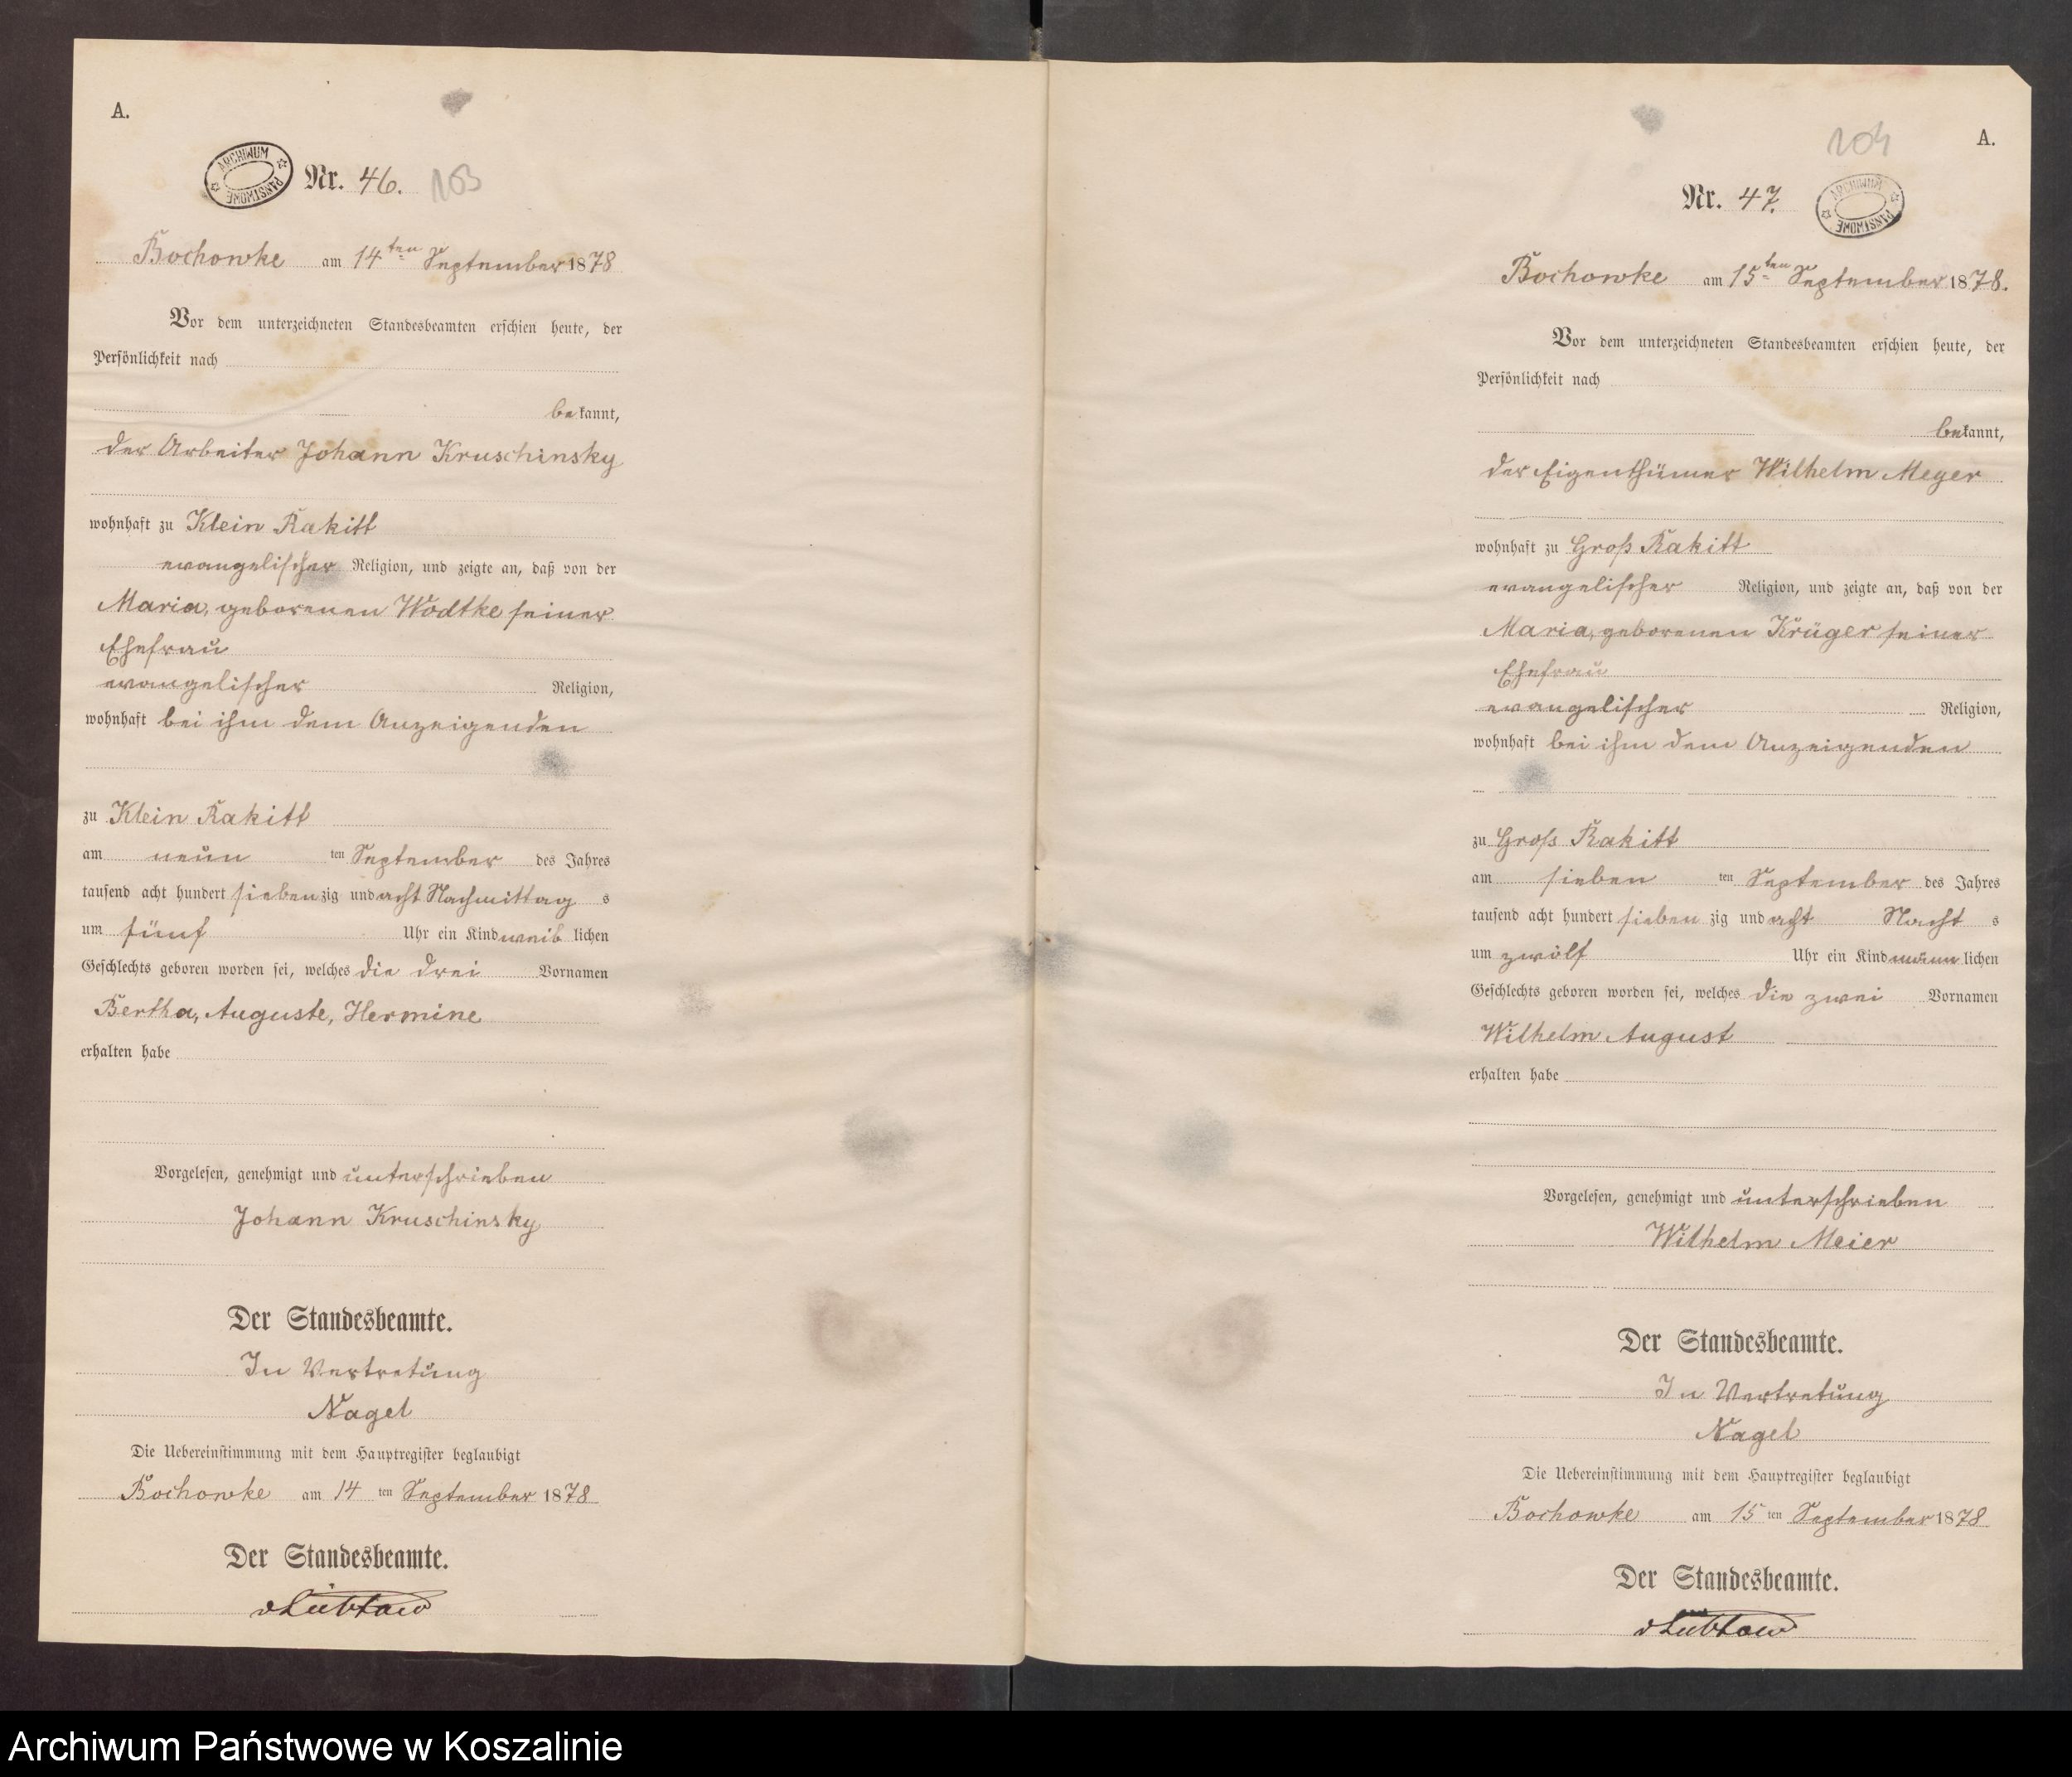 A.
ARCHIWUM PAŃSTWOWE
Nr. 46. 103
Bochowke am 14ten September 1878
Vor dem unterzeichneten Standesbeamten erschien heute, der
Persönlichkeit nach
bekannt,
der Arbeiter Johann Kruschinsky
wohnhaft zu Klein Rakitt
evangelischer Religion, und zeigte an, daß von der
Maria, geborenen Wodtke seiner
Ehefrau
evangelischer Religion,
wohnhaft bei ihm dem Anzeigenden
zu Klein Rakitt
am neun ten September des Jahres
tausend acht hundert siebenzig und acht Nachmittag s
um fünf Uhr ein Kind weib lichen
Geschlechts geboren worden sei, welches die drei Vornamen
Bertha, Auguste, Hermine
erhalten habe
Vorgelesen, genehmigt und unterschrieben
Johann Kruschinsky
Der Standesbeamte.
In Vertretung
Nagel
Die Uebereinstimmung mit dem Hauptregister beglaubigt
Bochowke am 14 ten September 1878
Der Standesbeamte.
vLübtow
104 A.
Nr. 47.
ARCHIWUM PAŃSTWOWE
Bochowke am 15ten September 1878.
Vor dem unterzeichneten Standesbeamten erschien heute, der
Persönlichkeit nach
bekannt,
der Eigenthümer Wilhelm Meyer
wohnhaft zu Groß Rakitt
evangelischer Religion, und zeigte an, daß von der
Maria, geborenen Krüger seiner
Ehefrau
evangelischer Religion,
wohnhaft bei ihm dem Anzeigenden
zu Groß Rakitt
am sieben ten September des Jahres
tausend acht hundert sieben zig und acht Nacht s
um zwölf Uhr ein Kind männ lichen
Geschlechts geboren worden sei, welches die zwei Vornamen
Wilhelm August
erhalten habe
Vorgelesen, genehmigt und unterschrieben
Wilhelm Meier
Der Standesbeamte.
In Vertretung
Nagel
Die Uebereinstimmung mit dem Hauptregister beglaubigt
Bochowke am 15 ten September 1878
Der Standesbeamte.
vLübtow
Archiwum Państwowe w Koszalinie